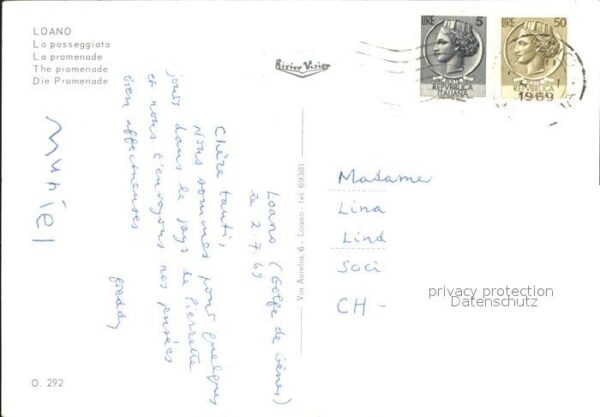 LOANO
La passeggiata
La promenade
The promenade
Die Promenade
Rivier Visier
LIRE 5
REPVBBLICA
ITALIANA
LIRE 50
REPVBBLICA
1969
Loano (Golfe de Gênes)
le 2.7.69
Chère tanti,
Nous sommes pour quelques
jours dans le pays de Pierrette
et nous t'envoyons nos pensées
bien affectueuses
Freddy
Muriel
Via Aurelia, 6 - Loano - tel. 69381
Madame
Lina
Lind
Soci
CH -
privacy protection
Datenschutz
O. 292